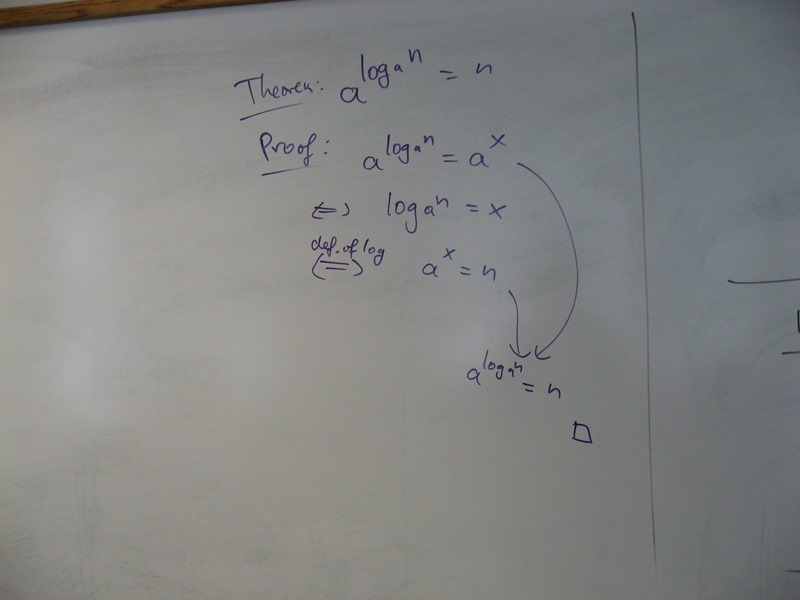 Theorem: a^{log_a n} = n
Proof: a^{log_a n} = a^x
⇔ log_a n = x
def. of log
⇔ a^x = n
a^{log_a n} = n
□